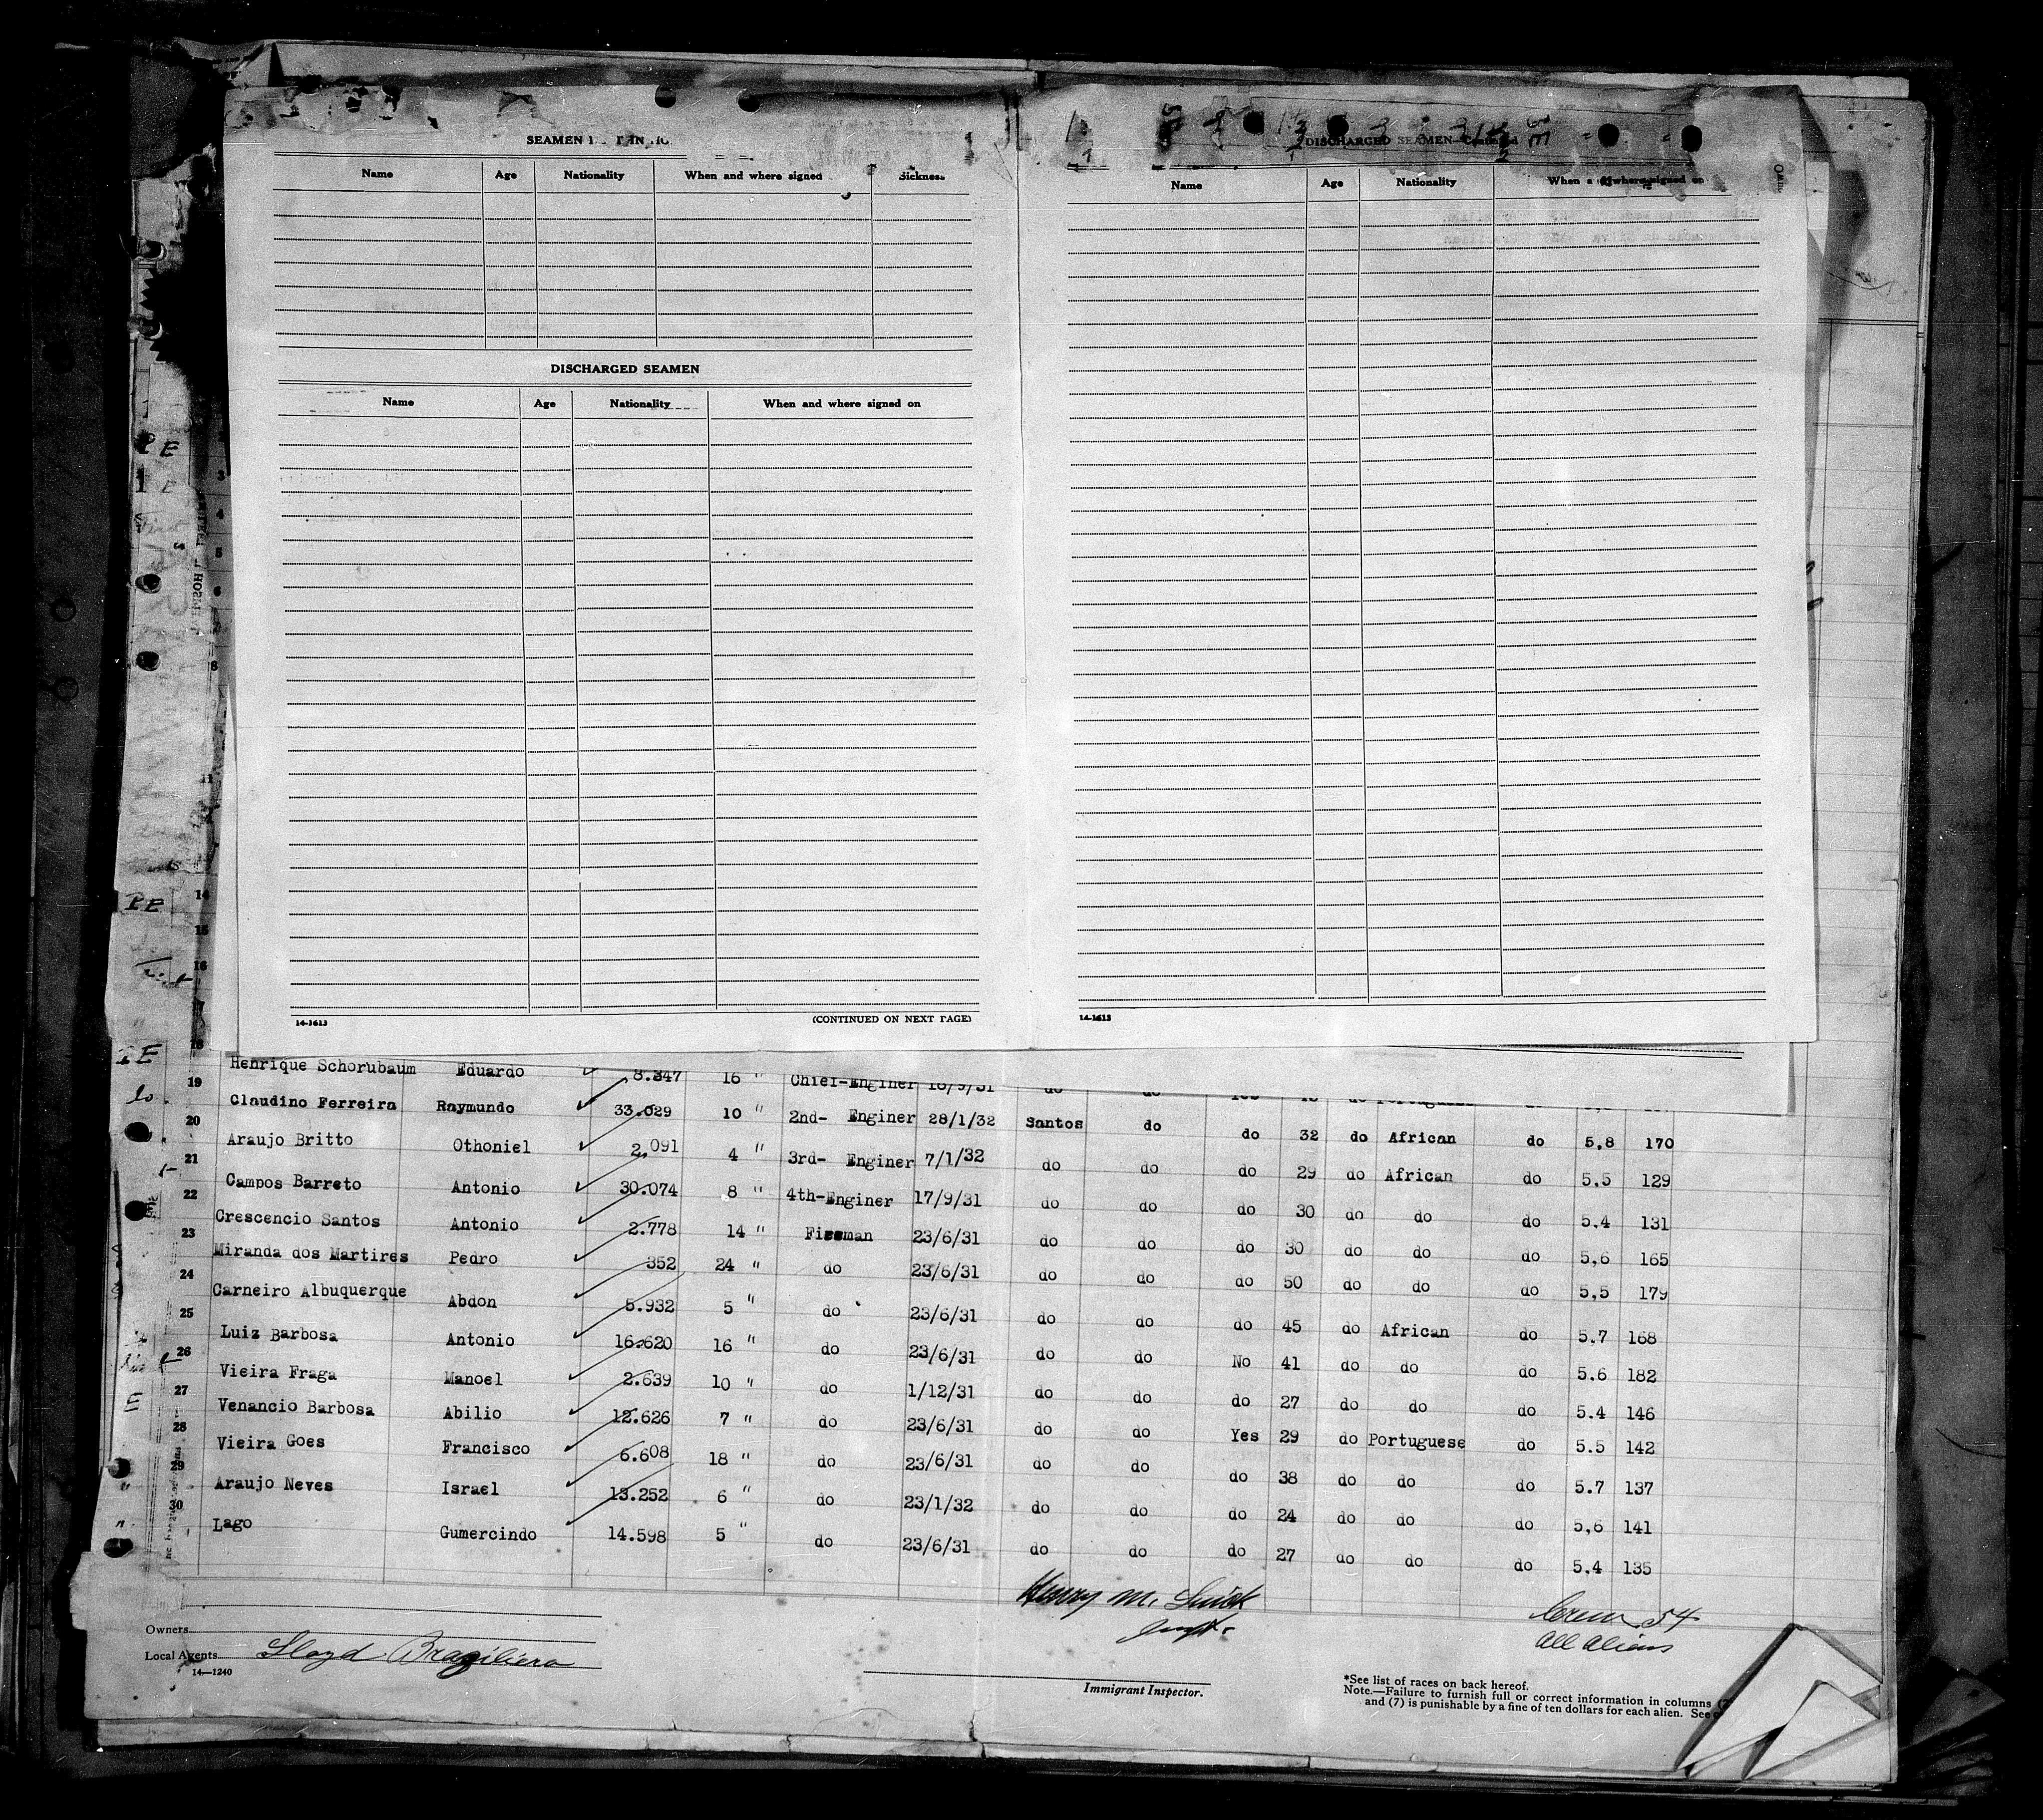 SEAMEN
Name Age Nationality When and where signed Sickness
DISCHARGED SEAMEN
Name Age Nationality When and where signed on
14-1613 (CONTINUED ON NEXT PAGE)
DISCHARGED SEAMEN—Continued
Name Age Nationality When and where signed on
14-1613
Henrique Schorubaum Eduardo 8.847 16 " Chief-Enginer 18/9/31 do do
19 Claudino Ferreira Raymundo 33.029 10 " 2nd- Enginer 28/1/32 Santos do do 32 do African do 5,8 170
20 Araujo Britto Othoniel 2.091 4 " 3rd- Enginer 7/1/32 do do do 29 do African do 5,5 129
21 Campos Barreto Antonio 30.074 8 " 4th-Enginer 17/9/31 do do do 30 do do do 5,4 131
22 Crescencio Santos Antonio 2.778 14 " Fireman 23/6/31 do do do 30 do do do 5,6 165
23 Miranda dos Martires Pedro 352 24 " do 23/6/31 do do do 50 do do do 5,5 179
24 Carneiro Albuquerque Abdon 5.932 5 " do 23/6/31 do do do 45 do African do 5.7 168
25 Luiz Barbosa Antonio 16.620 16 " do 23/6/31 do do No 41 do do do 5.6 182
26 Vieira Fraga Manoel 2.639 10 " do 1/12/31 do do do 27 do do do 5.4 146
27 Venancio Barbosa Abilio 12.626 7 " do 23/6/31 do do Yes 29 do Portuguese do 5.5 142
28 Vieira Goes Francisco 6.608 18 " do 23/6/31 do do do 38 do do do 5.7 137
29 Araujo Neves Israel 13.252 6 " do 23/1/32 do do do 24 do do do 5,6 141
30 Lago Gumercindo 14.598 5 " do 23/6/31 do do do 27 do do do 5.4 135
Henry M. Smick
Inspt.
Crew 54
All Aliens
Owners
Local Agents Lloyd Braziliero
14—1240
Immigrant Inspector.
*See list of races on back hereof.
Note.—Failure to furnish full or correct information in columns
and (7) is punishable by a fine of ten dollars for each alien. See